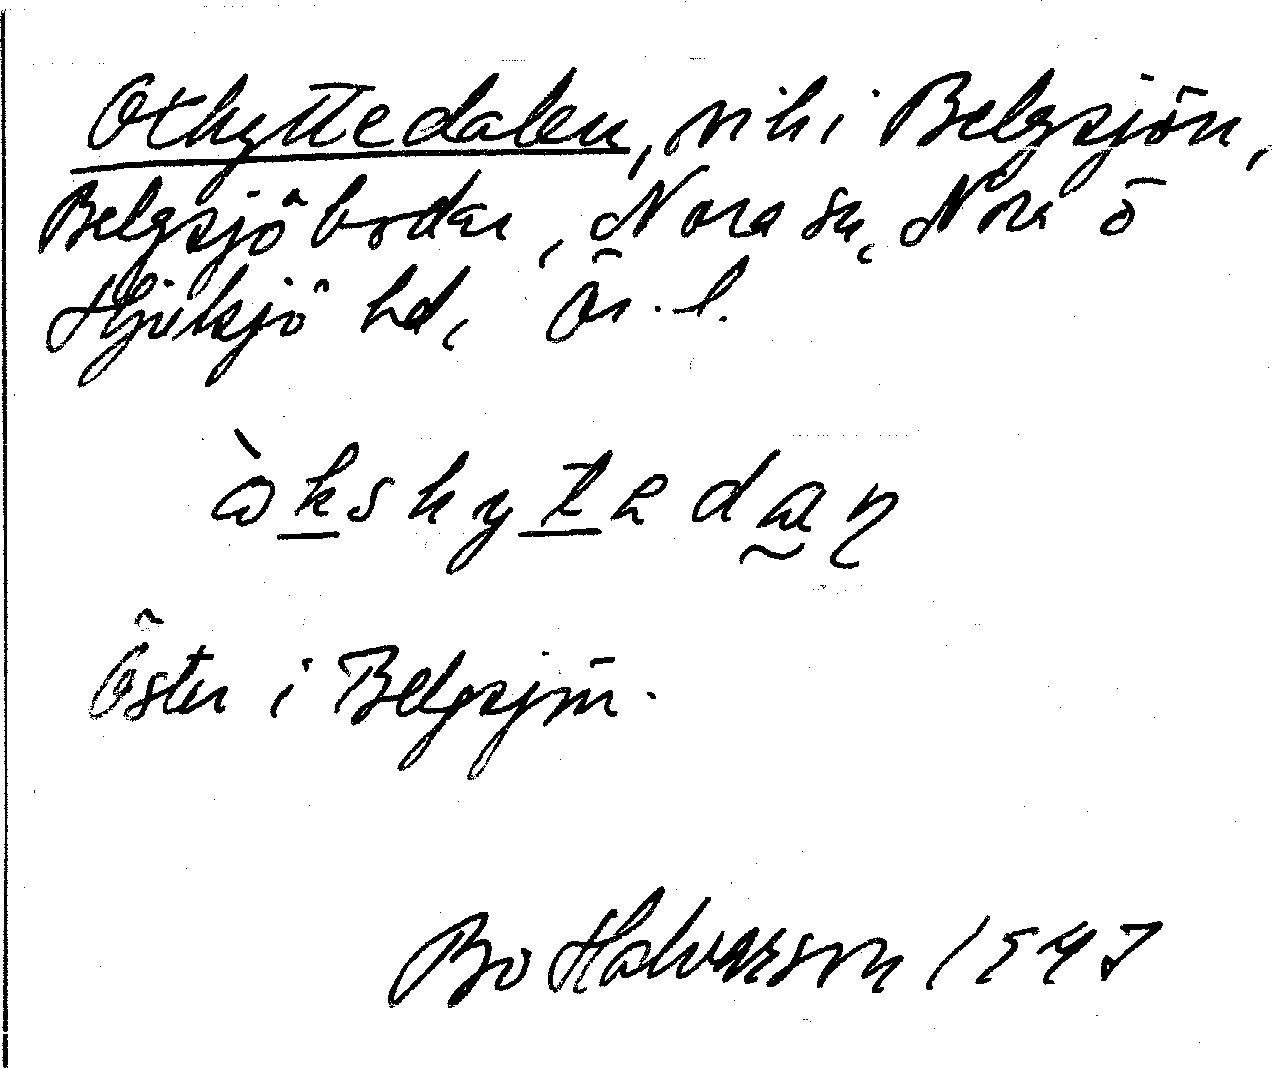 Othyttedalen, vik i Belgsjön,
Belgsjöbodar, Nora sn, Nora o
Hjulsjö hd, Ör. l.
òkshytedaɳ
Öster i Belgsjön.
Bo Halvarson 1947